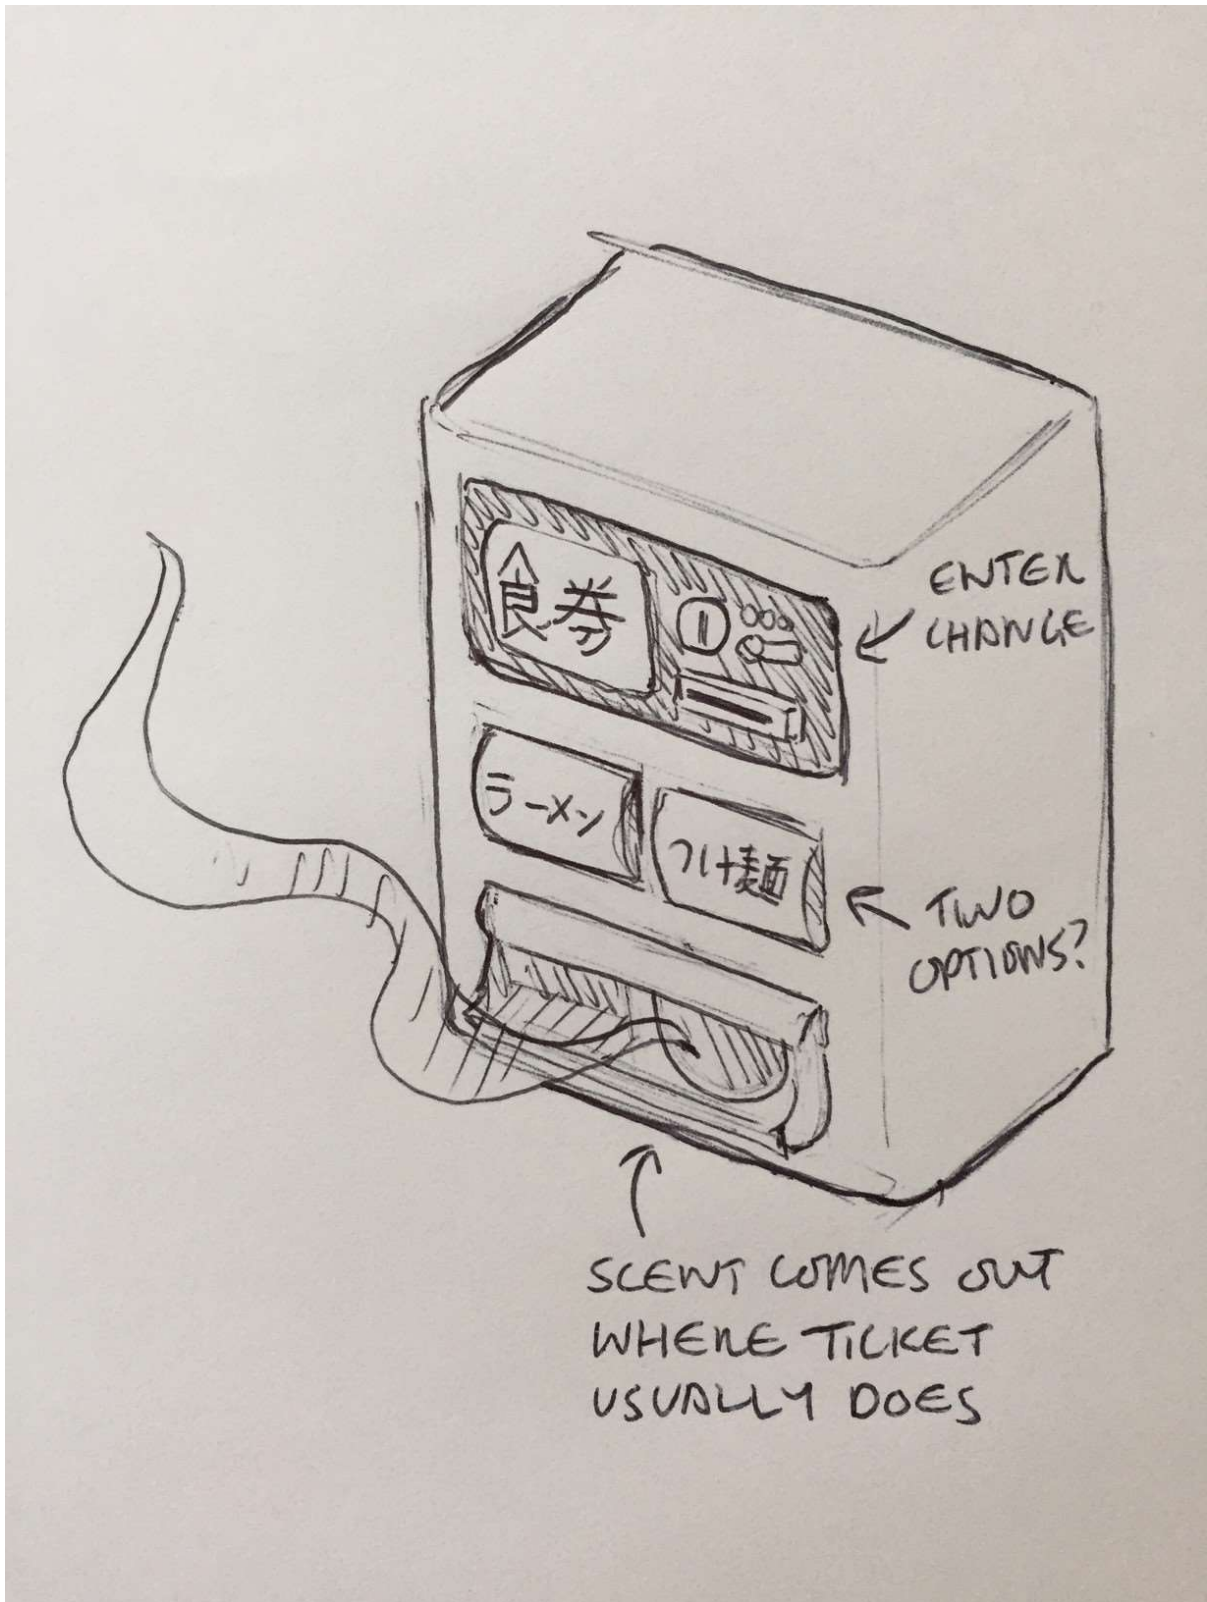 食券
ENTER
CHANGE
ラーメン
つけ麺
TWO
OPTIONS?
SCENT COMES OUT
WHERE TICKET
USUALLY DOES